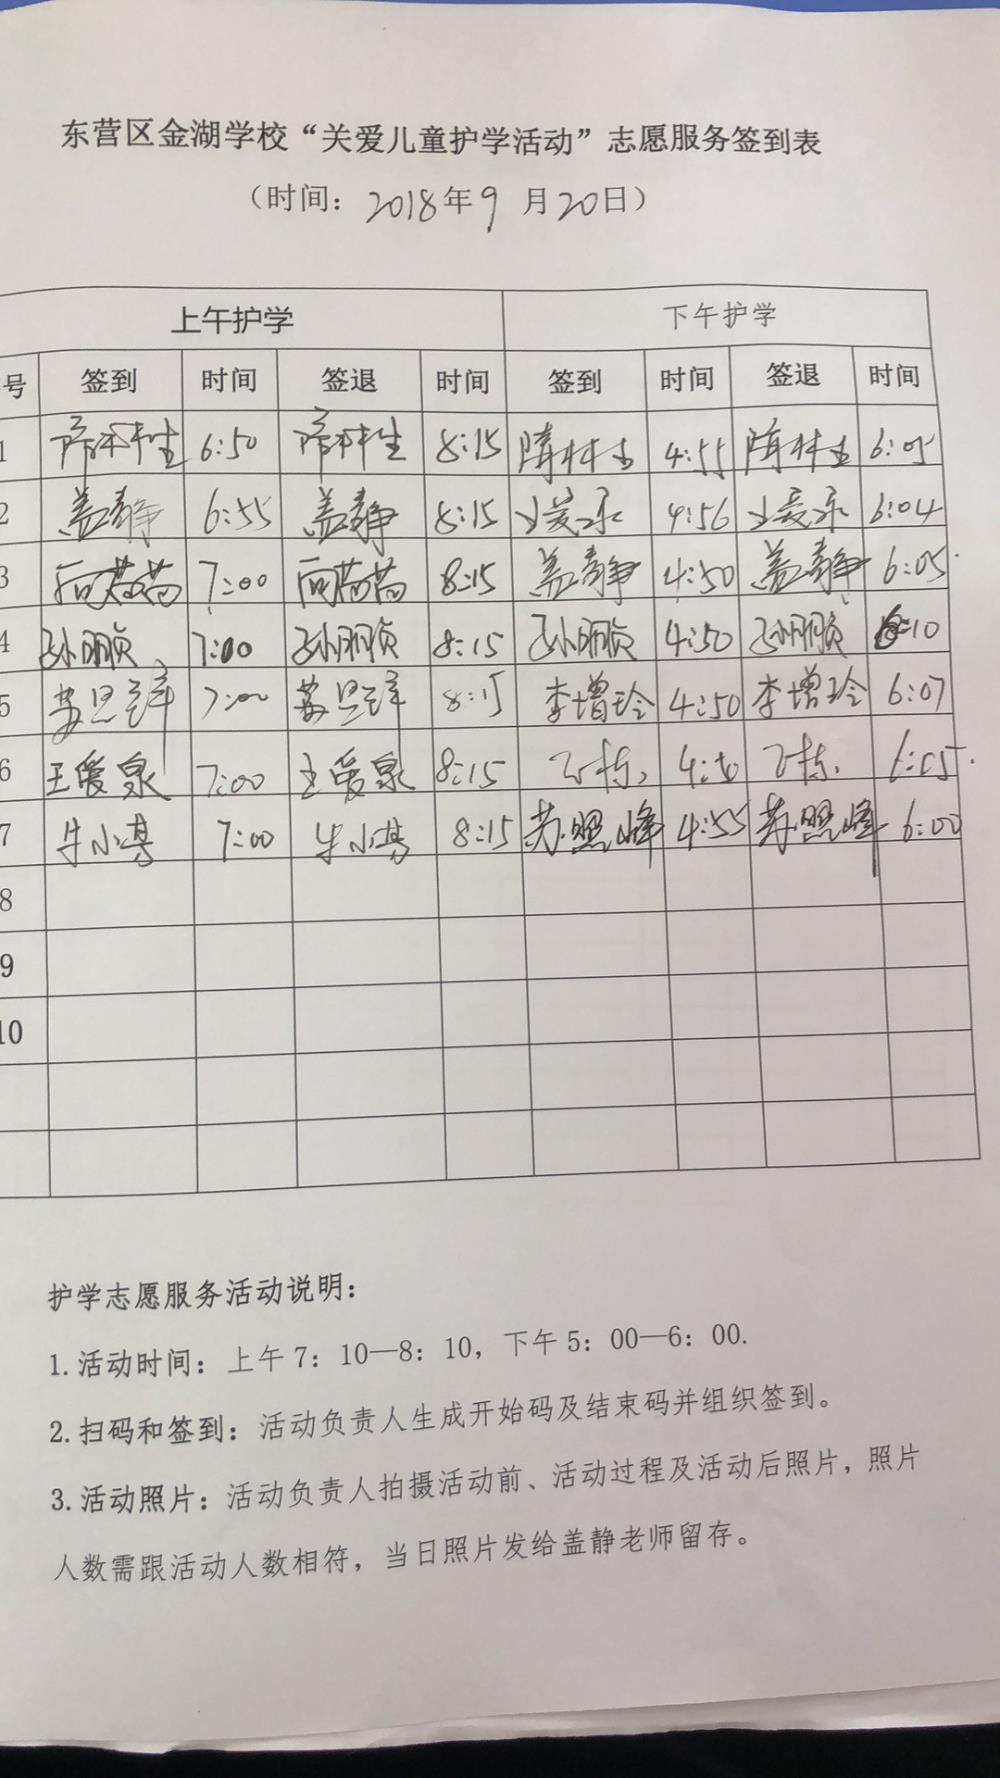 东营区金湖学校“关爱儿童护学活动”志愿服务签到表
（时间：2018年9月20日）
上午护学 下午护学
号 签到 时间 签退 时间 签到 时间 签退 时间
1 6:50 8:15 4:55 6:05
2 盖静 6:55 盖静 8:15 4:56 6:04
3 7:00 8:15 盖静 4:50 盖静 6:05
4 孙丽贞 7:00 孙丽贞 8:15 孙丽贞 4:50 孙丽贞 6:10
5 7:00 8:15 李增玲 4:50 李增玲 6:07
6 王爱泉 7:00 王爱泉 8:15 6:05
7 牛小 7:00 牛小 8:15 苏照峰 4:55 苏照峰 6:00
8
9
10
护学志愿服务活动说明：
1.活动时间：上午 7：10—8：10，下午 5：00—6：00.
2.扫码和签到：活动负责人生成开始码及结束码并组织签到。
3.活动照片：活动负责人拍摄活动前、活动过程及活动后照片，照片
人数需跟活动人数相符，当日照片发给盖静老师留存。